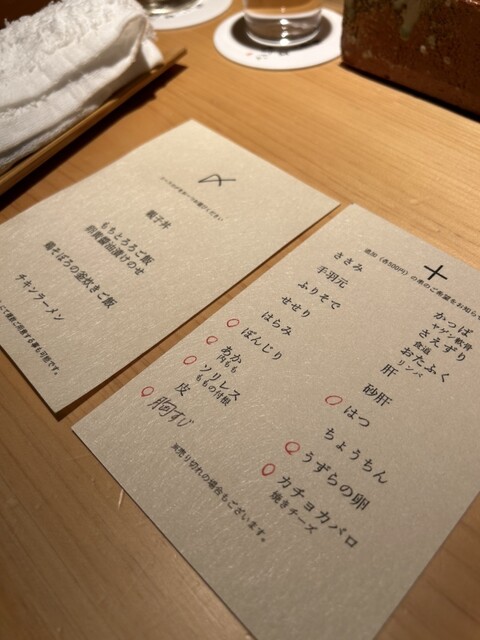 〆
親子丼
もちとろろご飯
卵黄醤油漬けのせ
鶏そぼろの釜炊きご飯
チキンラーメン
十
追加（各500円）の串のご希望をお知ら
ささみ
手羽元
ふりそで
せせり
はらみ
ぼんじり
あか
内もも
ソリレス
ももの付根
皮
胸すじ
かっぱ
ヤゲン軟骨
さえずり
食道
おたふく
リンパ
肝
砂肝
はつ
ちょうちん
うずらの卵
カチョカバロ
焼きチーズ
※売り切れの場合もございます。